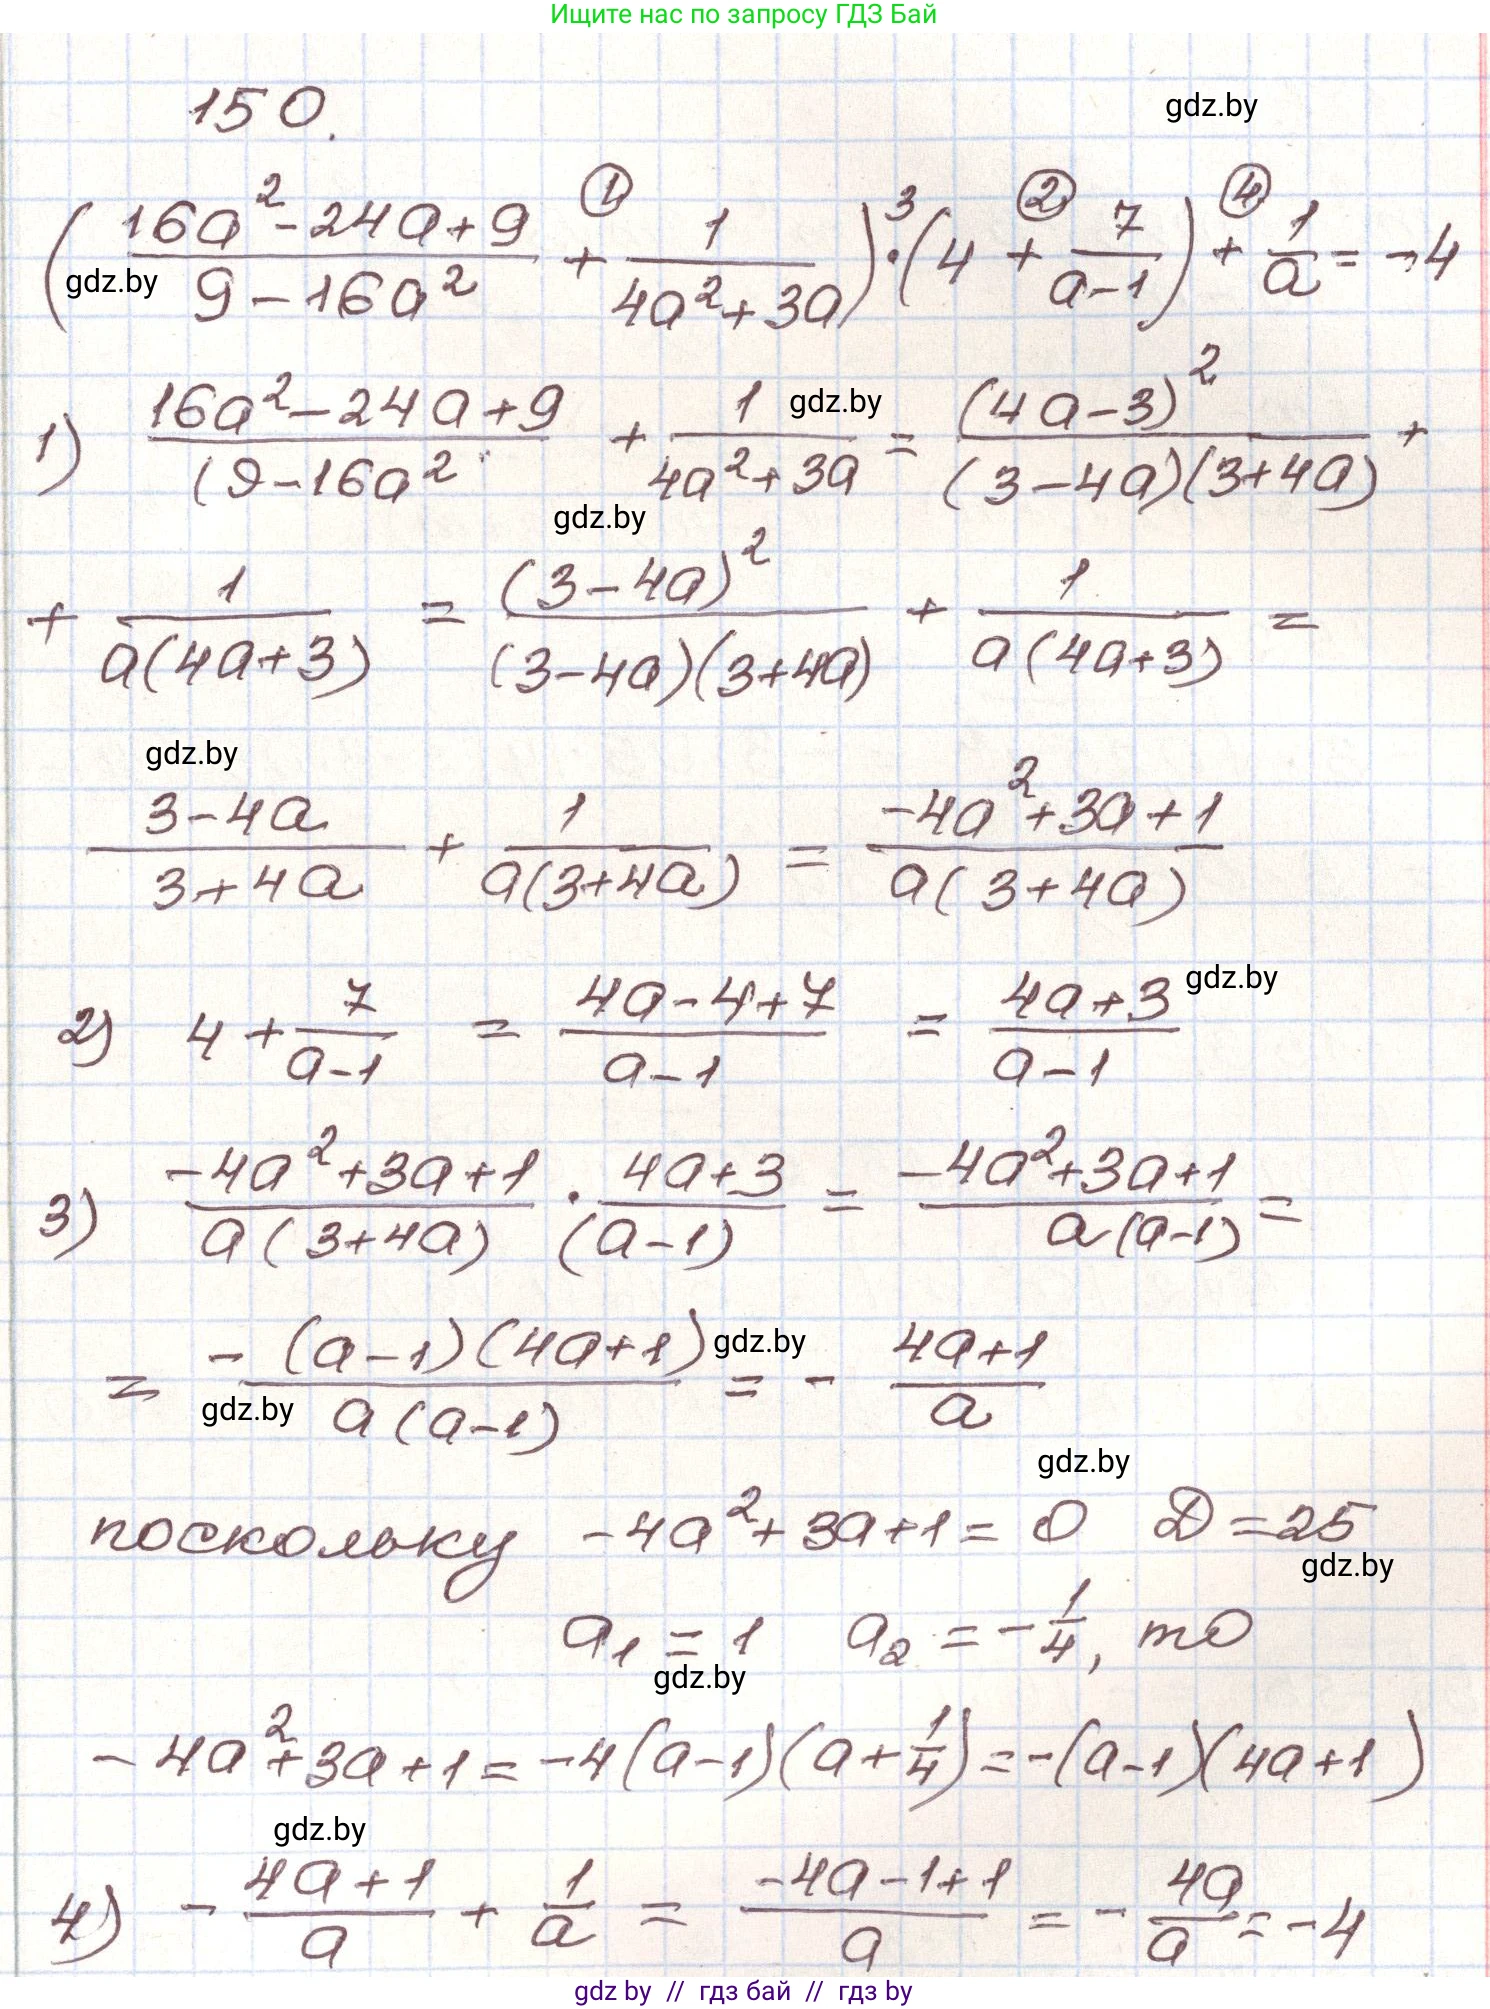 Ищите нас по запросу ГДЗ Бай
150.
gdz.by
(16a²-24a+9 / 9-16a² + ① 1 / 4a²+3a) ·³ (4 + ② 7 / a-1) + ④ 1/a = -4
gdz.by
1) 16a²-24a+9 / (9-16a² + 1 / 4a²+3a = (4a-3)² / (3-4a)(3+4a) +
gdz.by
gdz.by
+ 1 / a(4a+3) = (3-4a)² / (3-4a)(3+4a) + 1 / a(4a+3) =
gdz.by
3-4a / 3+4a + 1 / a(3+4a) = -4a²+3a+1 / a(3+4a)
2) 4 + 7 / a-1 = 4a-4+7 / a-1 = 4a+3 / a-1
gdz.by
3) -4a²+3a+1 / a(3+4a) · 4a+3 / (a-1) = -4a²+3a+1 / a(a-1) =
= -(a-1)(4a+1) / a(a-1) = - 4a+1 / a
gdz.by
gdz.by
gdz.by
поскольку -4a²+3a+1=0 D=25
gdz.by
a₁=1 a₂=-1/4, то
gdz.by
-4a²+3a+1=-4(a-1)(a+1/4)=-(a-1)(4a+1)
gdz.by
4) - 4a+1 / a + 1/a = -4a-1+1 / a = - 4a/a = -4
gdz by // гдз бай // гдз by